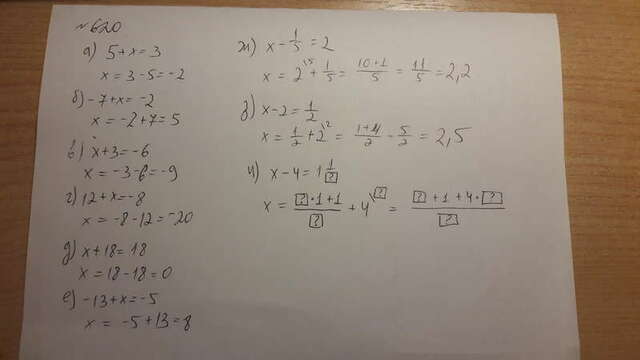 №620
а) 5+x=3
x = 3-5=-2
б) -7+x= -2
x = -2+7=5
в) x+3=-6
x = -3-6= -9
г) 12+x=-8
x = -8-12= -20
д) x+18=18
x = 18-18=0
е) -13+x=-5
x = -5+13=8
ж) x - 1/5 = 2
x = 2\5 + 1/5 = 10+1/5 = 11/5 = 2,2
з) x-2= 1/2
x = 1/2 + 2\2 = 1+4/2 - 5/2 = 2,5
и) x-4=1 1/?
x = ?·1+1/? + 4\? = ?+1+4·?/?